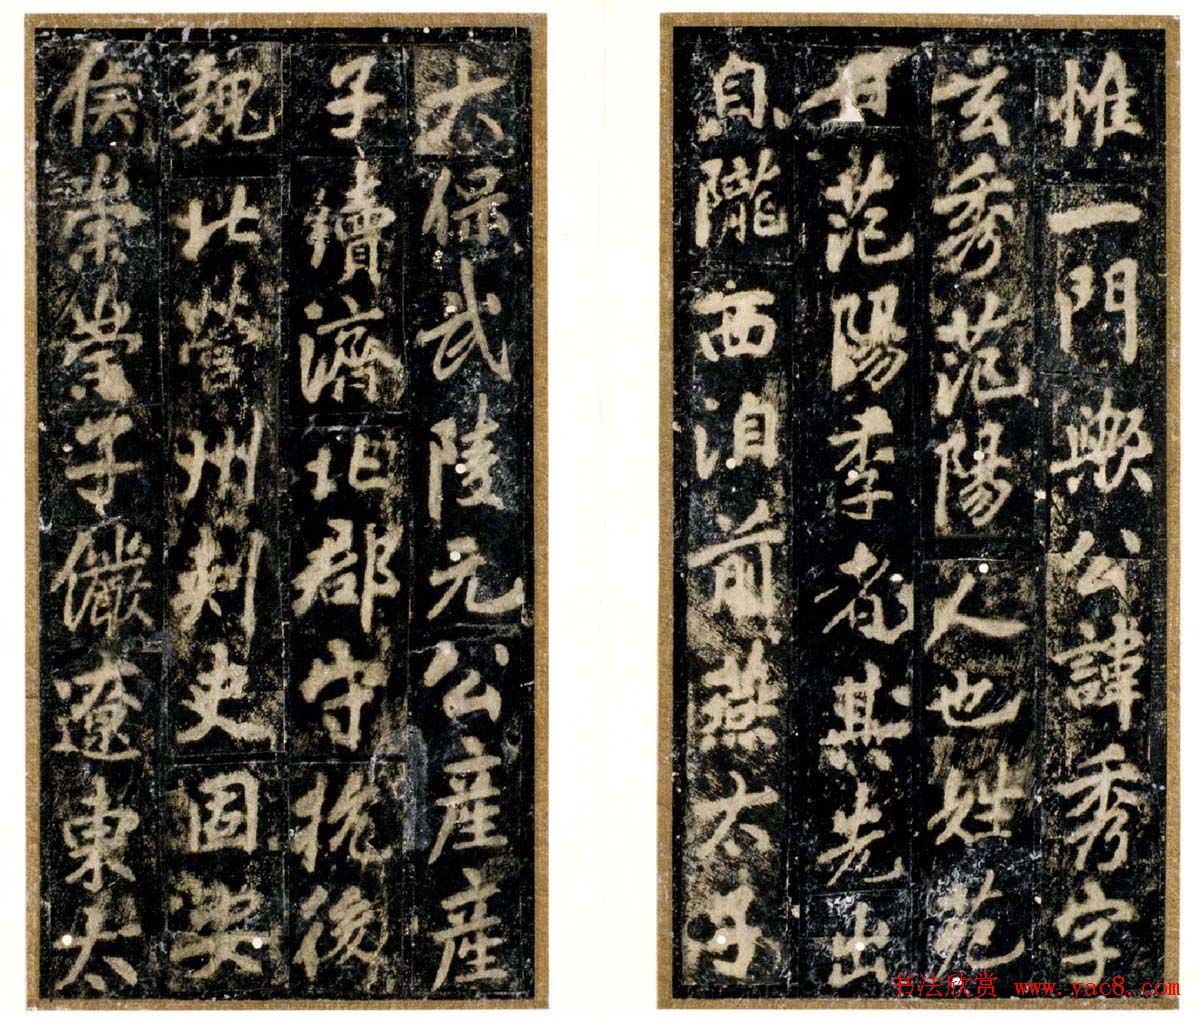 惟一門歟公諱秀字
玄秀范陽人也姓苑
曰范陽李者其先出
自隴西洎前燕太子
太保武陵元公産産
子續濟北郡守抗後
魏北營州刺史固安
侯崇崇子儼遼東太
书法欣赏 www.yac8.com